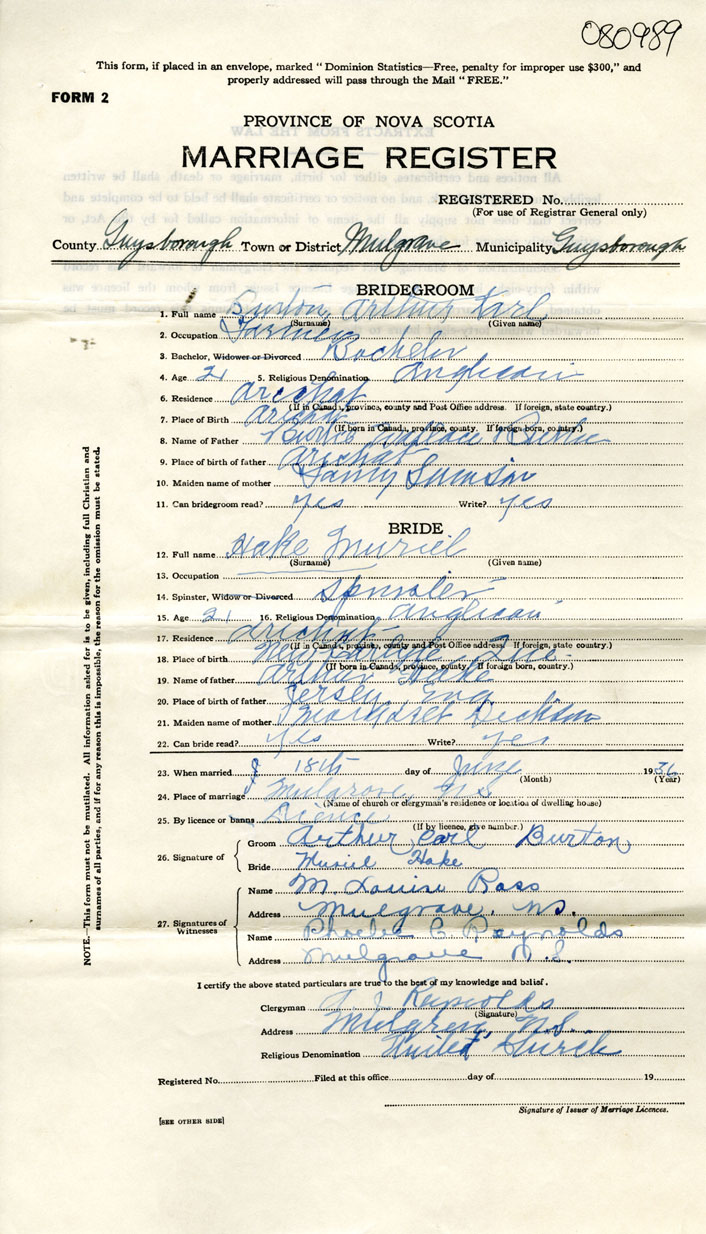 080989
This form, if placed in an envelope, marked "Dominion Statistics—Free, penalty for improper use $300," and
properly addressed will pass through the Mail "FREE."
FORM 2
PROVINCE OF NOVA SCOTIA
MARRIAGE REGISTER
REGISTERED No.
(For use of Registrar General only)
County Guysborough Town or District Mulgrave Municipality Guysborough
BRIDEGROOM
1. Full name Burton, Arthur Earl
(Surname) (Given name)
2. Occupation Farmer
3. Bachelor, Widower or Divorced Bachelor
4. Age 21 5. Religious Denomination Anglican
6. Residence Arichat
(If in Canada, province, county and Post Office address. If foreign, state country.)
7. Place of Birth Arichat
(If born in Canada, province, county. If foreign born, country.)
8. Name of Father Wallace
9. Place of birth of father Arichat
10. Maiden name of mother Samson
11. Can bridegroom read? yes Write? yes
BRIDE
12. Full name Hake Muriel
(Surname) (Given name)
13. Occupation
14. Spinster, Widow or Divorced Spinster
15. Age 21 16. Religious Denomination Anglican
17. Residence Arichat
(If in Canada, province, county and Post Office address. If foreign, state country.)
18. Place of birth New Carlyle Que
(If born in Canada, province, county. If foreign born, country.)
19. Name of father Arthur Hake
20. Place of birth of father Jersey, Eng
21. Maiden name of mother Margaret
22. Can bride read? yes Write? yes
23. When married 18th day of June 1936
(Month) (Year)
24. Place of marriage Mulgrave, N.S.
(Name of church or clergyman's residence or location of dwelling house)
25. By licence or banns Licence
(If by licence, give number.)
26. Signature of Groom Arthur Earl Burton
Bride Muriel Hake
27. Signatures of Witnesses Name M. Louise Ross
Address Mulgrave, N.S.
Name Phoebe C. Reynolds
Address Mulgrave N.S.
I certify the above stated particulars are true to the best of my knowledge and belief.
Clergyman Reynolds
(Signature)
Address Mulgrave, N.S.
Religious Denomination United Church
Registered No. Filed at this office day of 19
Signature of Issuer of Marriage Licences.
[SEE OTHER SIDE]
NOTE.—This form must not be mutilated. All information asked for is to be given, including full Christian and
surnames of all parties, and if for any reason this is impossible, the reason for the omission must be stated.